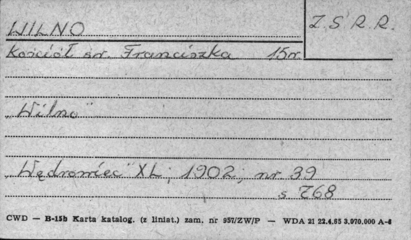 WILNO
Z S R R.
Kościół św. Franciszka 15w.
"Wilno"
"Wędrowiec" XL, 1902, nr 39
s 768
CWD — B-15b Karta katalog. (z liniat.) zam. nr 957/ZW/P — WDA 21 22.4.65 3.070.000 A-6